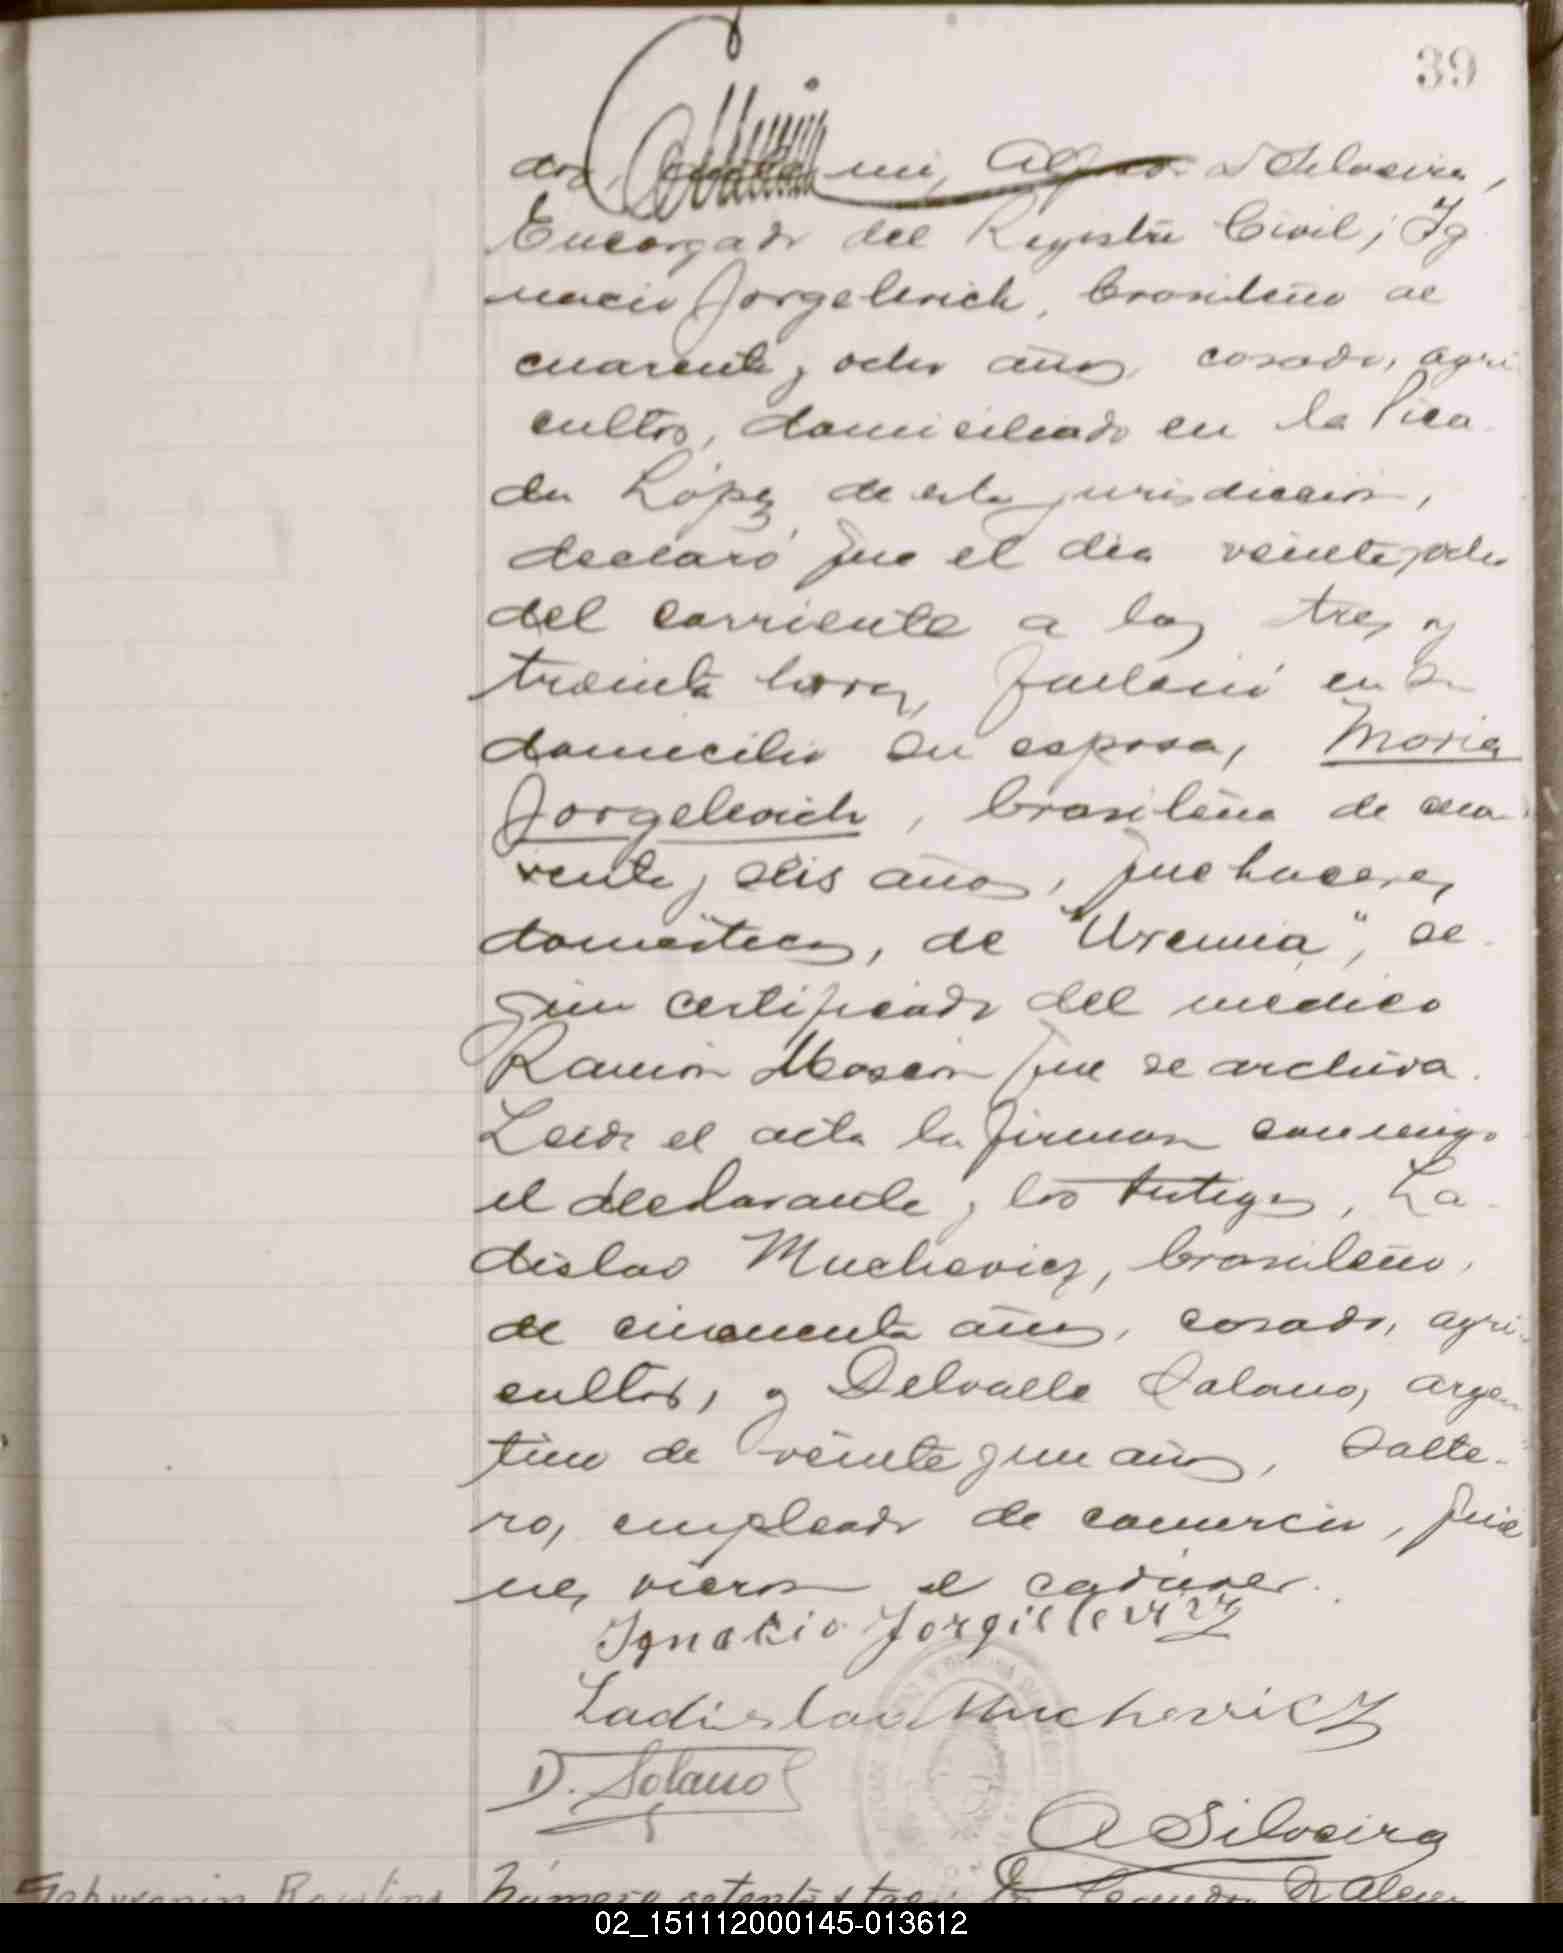 39
dos, ante mi, Alfredo D Silveira,
Encargado del Registro Civil; Ig
nacio Jorgelevich, brasileño de
cuarenta y ocho años, casado, agri
cultor, domiciliado en la Pica
da López de esta jurisdiccion,
declaró que el dia veinte y ocho
del corriente a las tres y
treinta horas, falleció en su
domicilio su esposa, Maria
Jorgelevich, brasileña de cua
renta y seis años, quehaceres
domésticos, de "Uremia", se
gún certificado del médico
Ramón que se archiva.
Leida el acta la firman conmigo
el declarante y los testigos, La
dislao Muchevicz, brasileño,
de cincuenta años, casado, agri
cultor, y Delvalle Solano, argen
tino de veinte y un años, solte-
ro, empleado de comercio, quie
nes vieron el cadáver.
Ignacio
Ladislao Muchevicz
D. Solano
A Silveira
Número setenta y tres: En Leandro N Alem